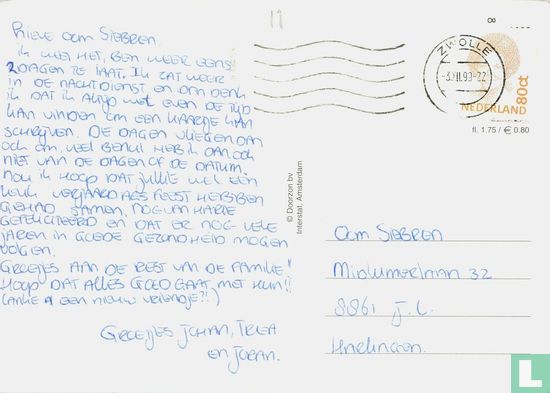 Lieve Oom Siebren,
ik weet het, ben weer eens
2 dagen te laat. Ik zat weer
in de nachtdienst en dan denk
ik dat ik altijd wel even de tijd
kan vinden om een kaartje kan
schrijven. De dagen vliegen dan
och om, veel benul heb ik dan och
niet van de dagen of de datum.
Nou ik hoop dat jullie wel een
leuk verjaardagsfeest hebben
gehad samen. Nog van harte
gefeliciteerd en dat er nog vele
jaren in goede gezondheid mogen
volgen.
Groetjes aan de rest van de familie"
Hoop dat alles goed gaat met hun!!
een nieuw vriendje?!)
Groetjes Johan, Trea
en Joran.
ZWOLLE
-3.VII.99-22
8
80ct
NEDERLAND
fl. 1,75 / € 0.80
© Doorzon bv
Interstat, Amsterdam
Oom Siebren
Midlumerlaan 32
8861 J.L.
Harlingen.
LastDodo